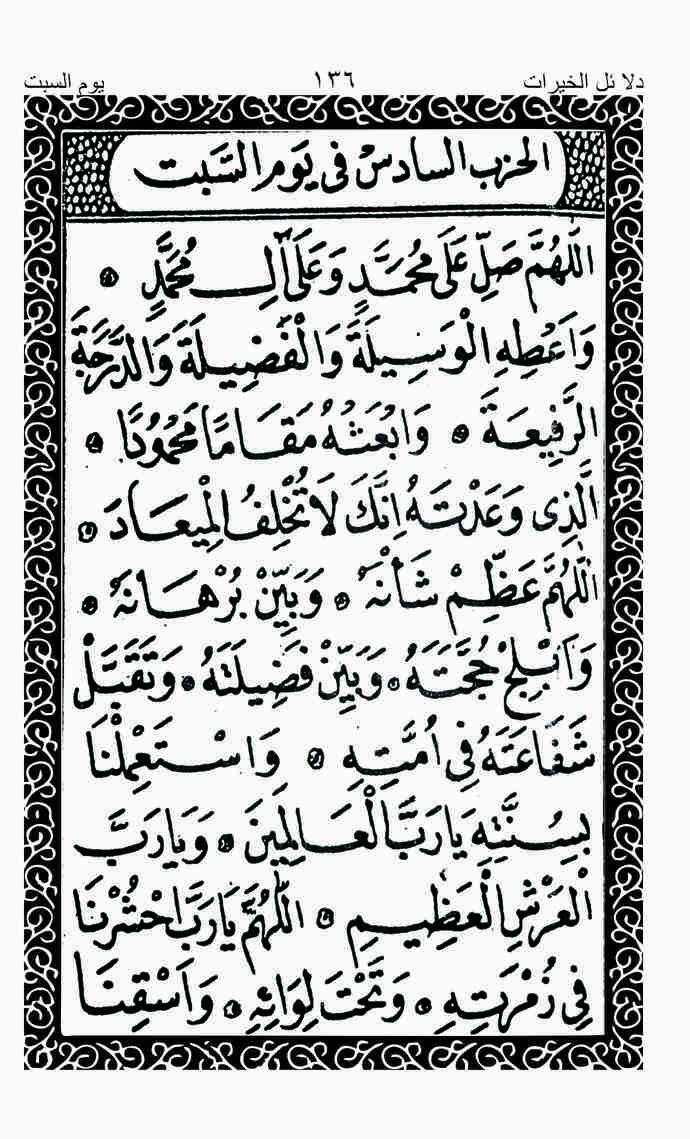 دلائل الخيرات ١٣٦ يوم السبت
الحزب السادس فی یوم السبت
اَللّٰهُمَّ صَلِّ عَلَی مُحَمَّدٍ وَعَلَی اٰلِ مُحَمَّدٍ
وَاَعْطِهِ الْوَسِيلَةَ وَالْفَضِيلَةَ وَالدَّرَجَةَ
الرَّفِيعَةَ وَابْعَثْهُ مَقَامًا مَحْمُودًا
الَّذِی وَعَدْتَهُ اِنَّكَ لَا تُخْلِفُ الْمِيعَادَ
اَللّٰهُمَّ عَظِّمْ شَأْنَهُ وَبَيِّنْ بُرْهَانَهُ
وَاَبْلِجْ حُجَّتَهُ وَبَيِّنْ فَضِيلَتَهُ وَتَقَبَّلْ
شَفَاعَتَهُ فِی اُمَّتِهِ وَاسْتَعْمِلْنَا
بِسُنَّتِهِ يَا رَبَّ الْعَالَمِينَ وَيَا رَبَّ
الْعَرْشِ الْعَظِيمِ اَللّٰهُمَّ يَا رَبَّ احْشُرْنَا
فِی زُمْرَتِهِ وَتَحْتَ لِوَائِهِ وَاَسْقِنَا